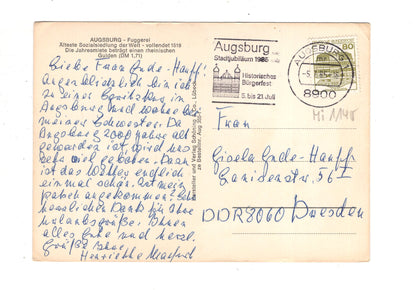 AUGSBURG - Fuggerei
Älteste Sozialsiedlung der Welt - vollendet 1519
Die Jahresmiete beträgt einen rheinischen
Gulden (DM 1,71)
Liebe Frau Gude-Hauff!
Augenblicklich bin ich
zu einer
Augsburg und wohne bei
meiner Schwester. Da
Augsburg 2000 Jahre alt
geworden ist, wird uns
sehr viel geboten. Dazu
ist das Wetter endlich
einmal schön.
angekommen.
herzlichen Dank für Ihre
Urlaubsgrüße. Ihnen
alles Gute und herzl.
Grüße Ihre
Henriette
Augsburg
Stadtjubiläum 1985
Historisches
Bürgerfest
5. bis 21 Juli
AUGSBURG
8900
80
Mi 1140
Frau
Gisela Gude-Hauff
56
DDR 8060 Dresden